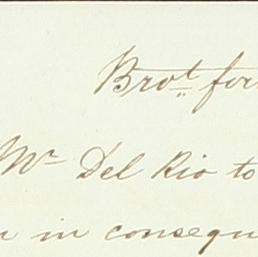 Brot. for
Mr Del Rio to
n in consequ